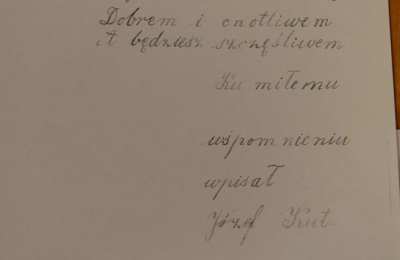 Dobrem i cnotliwem
A będziesz szczęśliwem
Ku miłemu
wspomnieniu
wpisał
Józef Kut